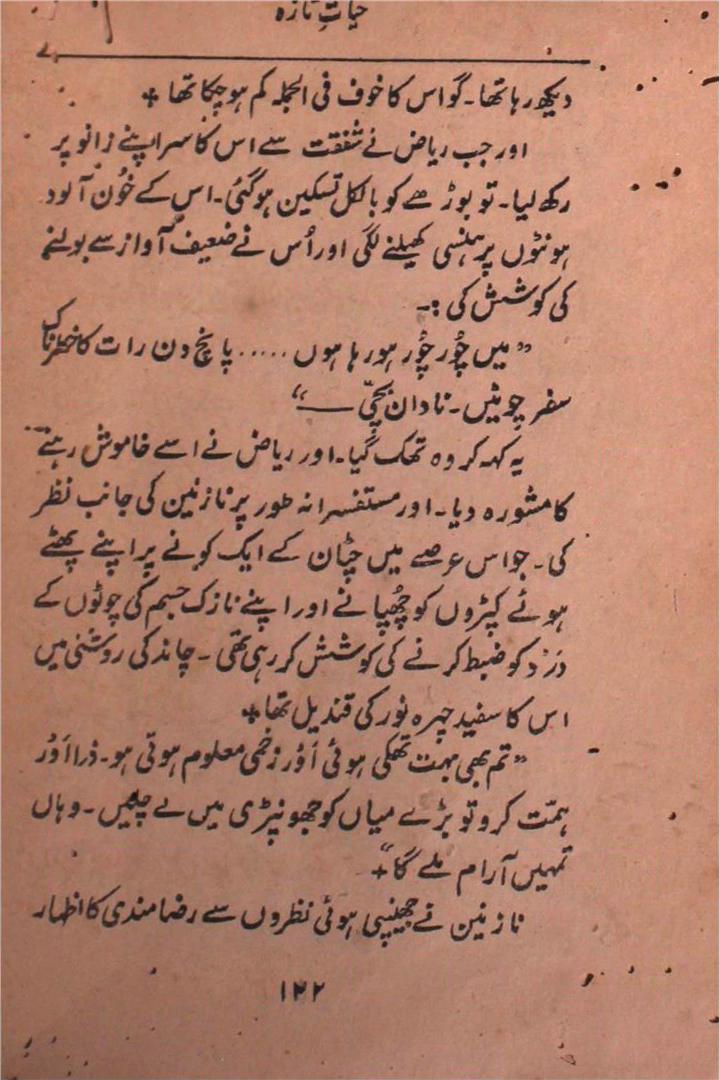 حیاتِ تازہ
دیکھ رہا تھا۔ گو اس کا خوف فی الجملہ کم ہو چکا تھا +
اور جب ریاض نے شفقت سے اس کا سر اپنے زانو پر
رکھ لیا۔ تو بوڑھے کو بالکل تسکین ہو گئی۔ اس کے خُون آلود
ہونٹوں پر ہنسی کھیلنے لگی اور اُس نے ضعیف آواز سے بولنے
کی کوشش کی :۔
”میں چُور چُور ہو رہا ہوں ..... پانچ دن رات کا خطرناک
سفر چوٹیں۔ نادان بچّی ——“
یہ کہہ کر وہ تھک گیا۔ اور ریاض نے اسے خاموش رہنے
کا مشورہ دیا۔ اور مستفسرانہ طور پر نازنین کی جانب نظر
کی۔ جو اس عرصے میں چٹان کے ایک کونے پر اپنے پھٹے
ہوئے کپڑوں کو چھُپانے اور اپنے نازک جسم کی چوٹوں کے
دَرد کو ضبط کرنے کی کوشش کر رہی تھی۔ چاند کی روشنی میں
اس کا سفید چہرہ نور کی قندیل تھا +
”تم بھی بہت تھکی ہوئی اَور زخمی معلوم ہوتی ہو۔ ذرا اَور
ہمّت کرو تو بڑے میاں کو جھونپڑی میں لے چلیں۔ وہاں
تمہیں آرام ملے گا“ +
نازنین نے جھینپی ہوئی نظروں سے رضامندی کا اظہار
۱۲۲